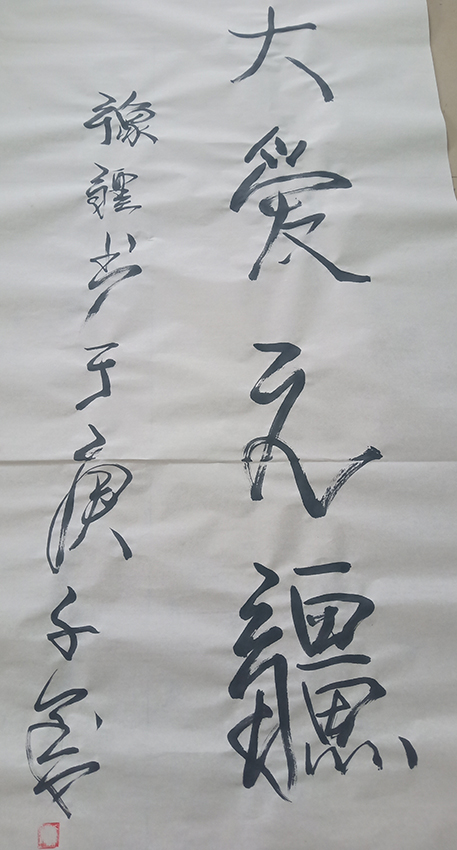 大爱无疆
豫疆书于庚子